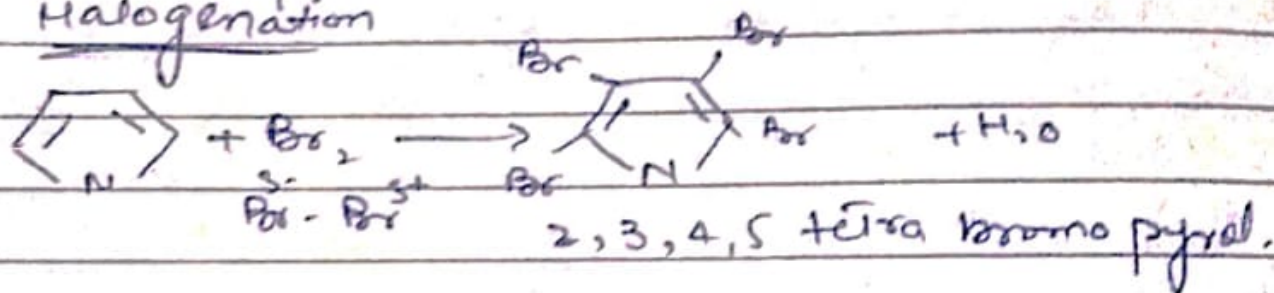 Halogenation
Br Br
+ Br₂ → Br + H₂O
N Br N
δ- δ+
Br - Br
2, 3, 4, 5 tetra bromo pyrol.